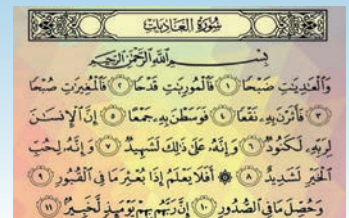 سُورَةُ العَادِيَات
بِسْمِ اللَّهِ الرَّحْمَٰنِ الرَّحِيمِ
وَالْعَٰدِيَٰتِ ضَبْحًا ۝١ فَالْمُورِيَٰتِ قَدْحًا ۝٢ فَالْمُغِيرَٰتِ صُبْحًا
۝٣ فَأَثَرْنَ بِهِۦ نَقْعًا ۝٤ فَوَسَطْنَ بِهِۦ جَمْعًا ۝٥ إِنَّ الْإِنسَٰنَ
لِرَبِّهِۦ لَكَنُودٌ ۝٦ وَإِنَّهُۥ عَلَىٰ ذَٰلِكَ لَشَهِيدٌ ۝٧ وَإِنَّهُۥ لِحُبِّ
الْخَيْرِ لَشَدِيدٌ ۝٨ ۞ أَفَلَا يَعْلَمُ إِذَا بُعْثِرَ مَا فِي الْقُبُورِ ۝٩
وَحُصِّلَ مَا فِي الصُّدُورِ ۝١٠ إِنَّ رَبَّهُم بِهِمْ يَوْمَئِذٍ لَّخَبِيرٌۢ ۝١١